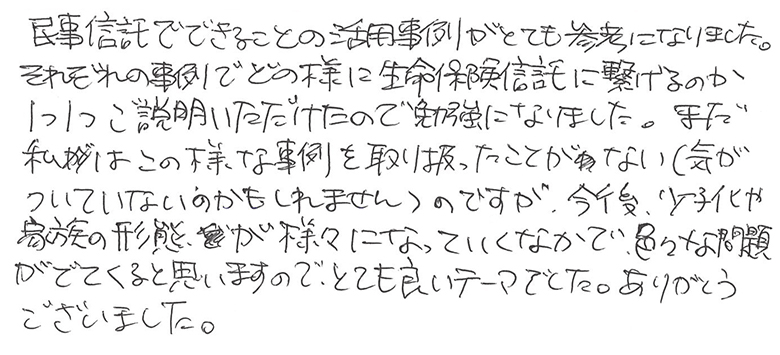 民事信託でできることの活用事例がとても参考になりました。
それぞれの事例でどの様に生命保険信託に繋げるのか
1つ1つご説明いただけたので勉強になりました。まだ
私共はこの様な事例を取り扱ったことがない(気が
ついていないのかもしれません)のですが、今後、少子化や
家族の形態が様々になっていくなかで、色々な問題
がでてくると思いますので、とても良いテーマでした。ありがとう
ございました。